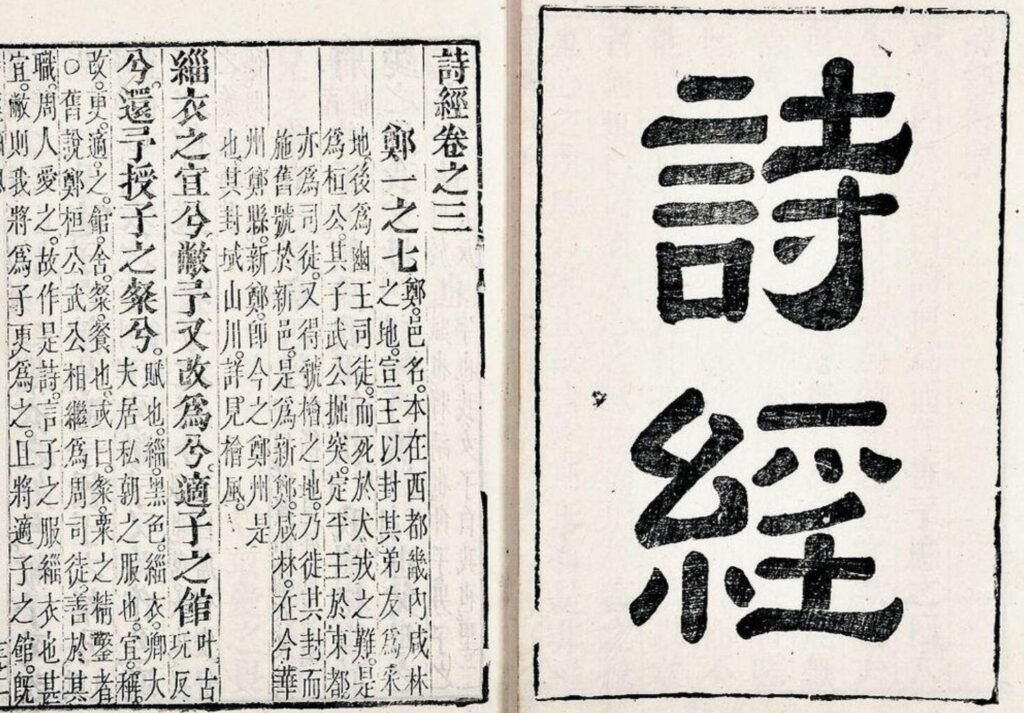 詩經
詩經卷之三
鄭一之七 鄭。邑名。本在西都畿內咸林
之地。宣王以封其弟友爲采
地。後爲幽王司徒。而死於犬戎之難。是
爲桓公。其子武公掘突。定平王於東都
亦爲司徒。又得虢檜之地。乃徙其封而
施舊號於新邑。是爲新鄭。咸林。在今華
州鄭縣。新鄭。卽今之鄭州是
也。其封域山川。詳見檜風。
緇衣之宜兮敝予又改爲兮。適子之館 叶古
玩反
兮。還予授子之粲兮。 賦也。緇。黑色。緇衣。卿大
夫居私朝之服也。宜。稱。
改。更。適。之。館。舍。粲。餐也。或曰。粲。粟之精鑿者
○舊說鄭桓公武公相繼爲周司徒。善於其
職。周人愛之。故作是詩。言子之服緇衣也甚
宜。敝則我將爲子更爲之。且將適子之館。旣